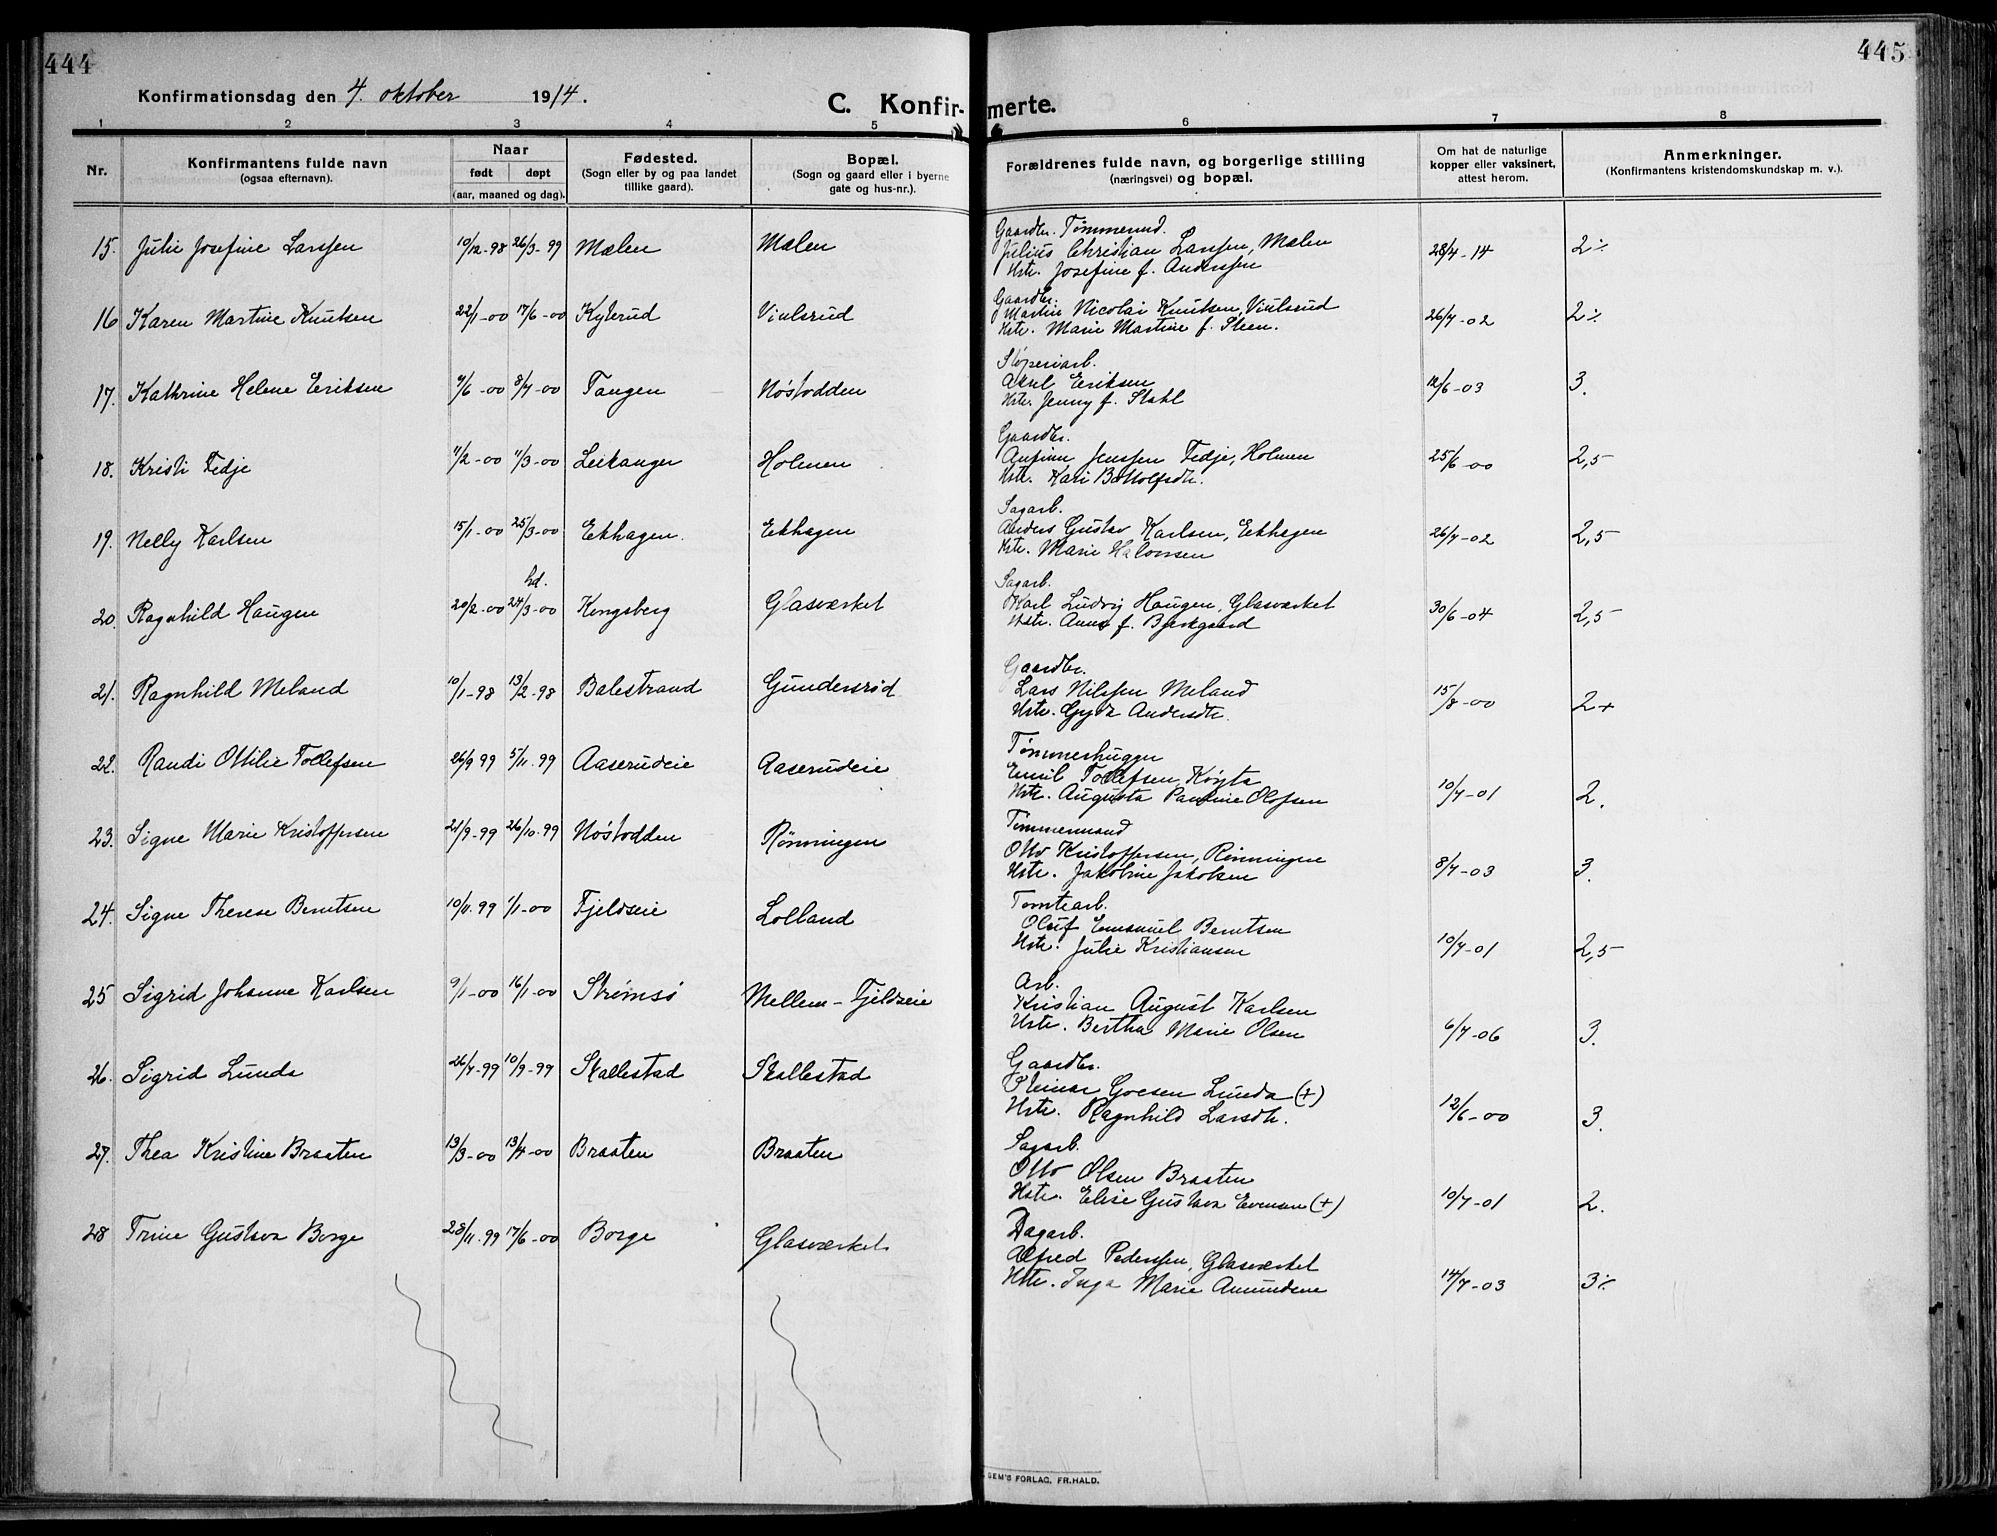 444
445
Konfirmationsdag den 4. oktober 1914.
C. Konfirmerte.
1 2 3 4 5 6 7 8
Nr.
Konfirmantens fulde navn
(ogsaa efternavn).
Naar
født døpt
(aar, maaned og dag).
Fødested.
(Sogn eller by og paa landet
tillike gaard).
Bopæl.
(Sogn og gaard eller i byerne
gate og hus-nr.).
Forældrenes fulde navn, og borgerlige stilling
(næringsvei) og bopæl.
Om hat de naturlige
kopper eller vaksinert,
attest herom.
Anmerkninger.
(Konfirmantens kristendomskundskap m. v.).
Gaardbr. Tømmermd.
15. Julie Josefine Larssen 10/12-98 26/3-99 Mælen Mælen Julius Christian Larssen, Mælen 28/4-14 2÷
Hstr. Josefine f. Anderssen
Gaardbr.
16 Karen Martine Knutsen 22/1-00 17/6-00 Kylerud Viulsrud Martin Nicolai Knutsen, Viulsrud 26/7-02 2÷
Hstr. Marie Martine f. Steen.
Støperiarb.
17. Kathrine Helene Eriksen 4/6-00 8/7-00 Tangen Nøstodden Axel Eriksen 12/6-03 3.
Hstr. Jenny f. Stahl
Gaardbr.
18. Kristi Fedje 11/2-00 11/3-00 Leikanger Holmen Anfinn Jenssen Fedje, Holmen 25/6-00 2,5
Hstr. Kari Bottolfsdtr.
Sagarb.
19. Nelly Karlsen 15/1-00 25/3-00 Ekhagen. Ekhagen Anders Gustav Karlsen, Ekhagen 26/7-02 2,5
Hstr. Marie Halvorsen
Sagarb.
20. Ragnhild Haugen 20/2-00 hd. 24/3-00 Kongsberg Glasværket Karl Ludvig Haugen, Glasværket 30/6-04 2,5
Hstr. Anna f. Bjerkgaard
Gaardbr.
21. Ragnhild Meland 10/1-98 13/2-98 Balestrand Gundersrød Lars Nilssen Meland 15/8-00 2+
Hstr. Gyda Andersdtr.
Tømmerhugger
22. Randi Ottilie Tollefsen 26/9 99 5/11. 99 Aaserudeie Aaserudeie Emil Tollefsen, Køyta 10/7-01 2.
Hstr. Augusta Pauline Olofsen
Tømmermand
23. Signe Marie Kristoffersen 21/9-99 26/10-99 Nøstodden Rønningen Otto Kristoffersen, Rønningen 8/7-03 3.
Hstr. Jakobine Jakobsen
Tomtearb.
24. Signe Therese Berntsen 10/11.99 1/1-00 Fjeldseie Lolland Oluf Emanuel Berntsen 10/7-01 2,5
Hstr. Julie Kristiansen
Arb.
25 Sigrid Johanne Karlsen 9/1-00 16/1-00 Strømsø Mellem-Fjeldseie Kristian August Karlsen 6/7-06 3.
Hstr. Bertha Marie Olsen
Gaardbr.
26. Sigrid Lunda 26/7-99 10/9-99 Skallestad Skallestad Steinar Goesen Lunda (+) 12/6-00 3.
Hstr. Ragnhild Larsdtr.
Sagarb.
27. Thea Kristine Braaten 13/3-00 13/4-00 Braaten Braaten Otto Olsen Braaten 10/7-01 2.
Hstr. Elise Gustava Evensen (+)
Dagarb.
28 Trine Gustava Borge 28/11.99 17/6-00 Borge Glasværket Alfred Pederssen, Glasværket 14/7-03 3÷
Hstr. Inga Marie Amundsen
SEM'S FORLAG, FR.HALD.